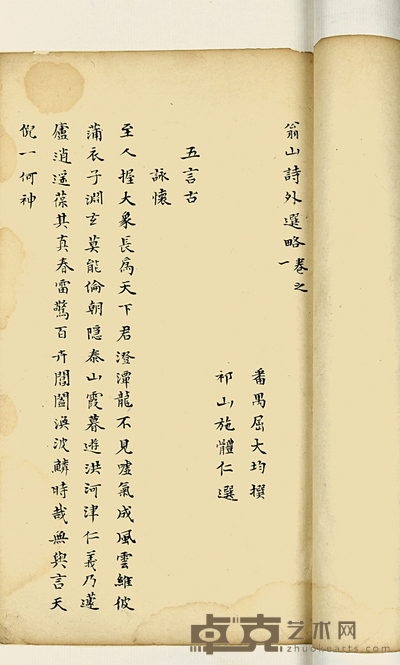 翁山詩外選略卷之一
番禺屈大均撰
祁山施體仁選
五言古
詠懷
至人握大象長為天下君澄潭龍不見噓氣成風雲維彼
蒲衣子淵玄莫能倫朝隱泰山霞暮遊洪河津仁義乃蘧
廬逍遙葆其真春雷驚百卉閶闔渙波鱗時哉無與言天
倪一何神
卓克艺术网
zhuokearts.com